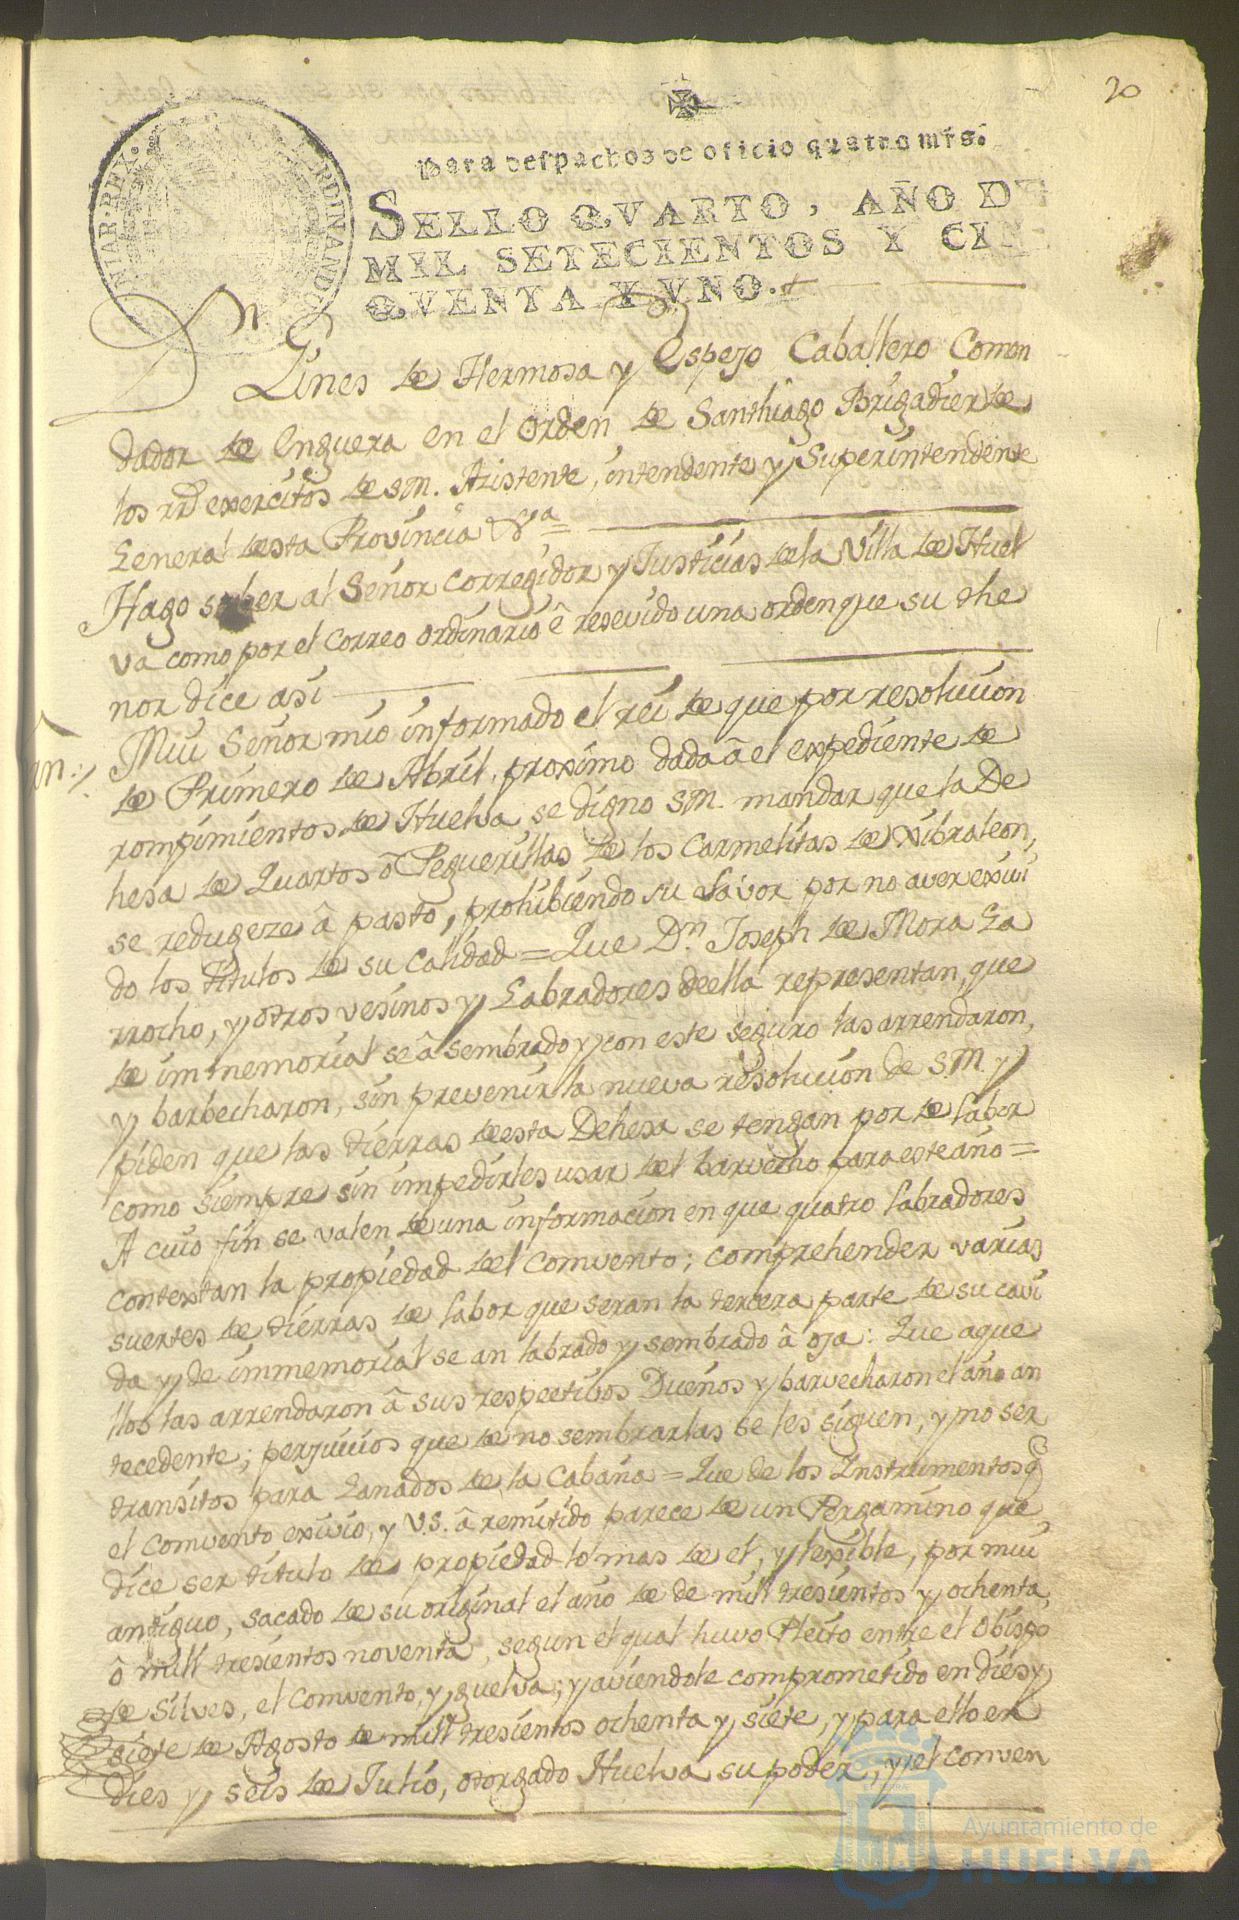 20
Para despachos de oficio quatro mrs.
SELLO QVARTO, AÑO DE
MIL SETECIENTOS Y CIN
QVENTA Y VNO.
Dn Gines de Hermosa y Espejo Caballero Comon
dador de Enguera en el orden de Santhiago Brigadier de
los rrs exercitos de S.M. Asistente, intendente y Superintendente
General desta Provincia &a
Hago saber al Señor Corregidor y Justicias de la Villa de Huel
va como por el Correo ordinario ê resevido una orden que su the
nor dice asi
Mui Señor mio informado el rei de que por resoluuion
de Primero de Abril proximo dada â el expediente de
rompimientos de Huelva se digno S.M. mandar que la De
hesa de Quartos ô Peguerillas de los Carmelitas de Xibraleon,
se redugeze â pasto, prohibiendo su lavor por no aver exivi
do los titulos de su calidad = Que Dn. Joseph de Mora Ga
rrocho, y otros vesinos y Labradores deella representan, que
de immemorial se â sembrado y con este seguro las arrendaron,
y barbecharon, sin prevenir la nueva resoluuion de S.M. y
piden que las tierras desta Dehesa se tengan por de labor
como siempre sin impedirles usar del barvecho para este año =
A cuio fin se valen de una informacion en que quatro labradores
contextan la propiedad del Comvento; comprehender varias
suertes de tierras de labor que seran la tercera parte de su cavi
da y de immemorial se an labrado y sembrado â oja: Que aque
llos las arrendaron â sus respectivos Dueños y barvecharon el año an
tecedente; perjuuios que de no sembrarlas se les siguen, y no ser
transitos para Ganados de la Cabaña = Que de los Instrumentos q
el Comvento exivio, y V.S. â remitido parece de un Pergamino que
dice ser titulo de propiedad lo mas de el, ylexible, por mui
antiguo, sacado de su original el año de de mill tresientos y ochenta,
ô mill tresientos noventa, segun el qual huvo Pleito entre el Obispo
de Silves, el Comvento, y guelva; y aviendole comprometido en dies y
siete de Agosto de mill tresientos ochenta y siete, y para ello en
dies y seis de Julio, otorgado Huelva su poder, y el Conven
Ayuntamiento de
HUELVA